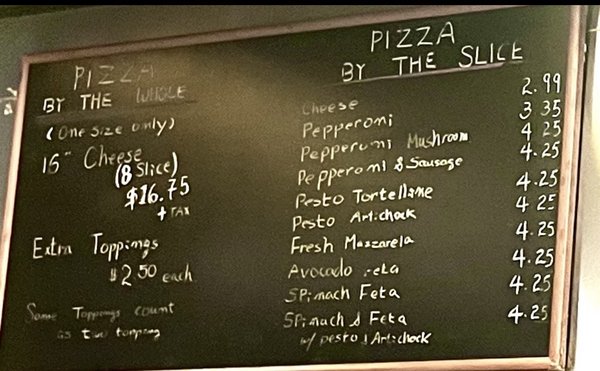 PIZZA
BY THE WHOLE
(One Size only)
16" Cheese
(8 Slice)
$16.75
+ TAX
Extra Toppings
$2.50 each
Some Toppings count
as two topping
PIZZA
BY THE SLICE
Cheese 2.99
Pepperoni 3.35
Pepperoni Mushroom 4.25
Pepperoni & Sausage 4.25
Pesto Tortelline 4.25
Pesto Artichock 4.25
Fresh Mozzarela 4.25
Avocado 4.25
Spinach Feta 4.25
Spinach & Feta 4.25
w/ pesto & Artichock